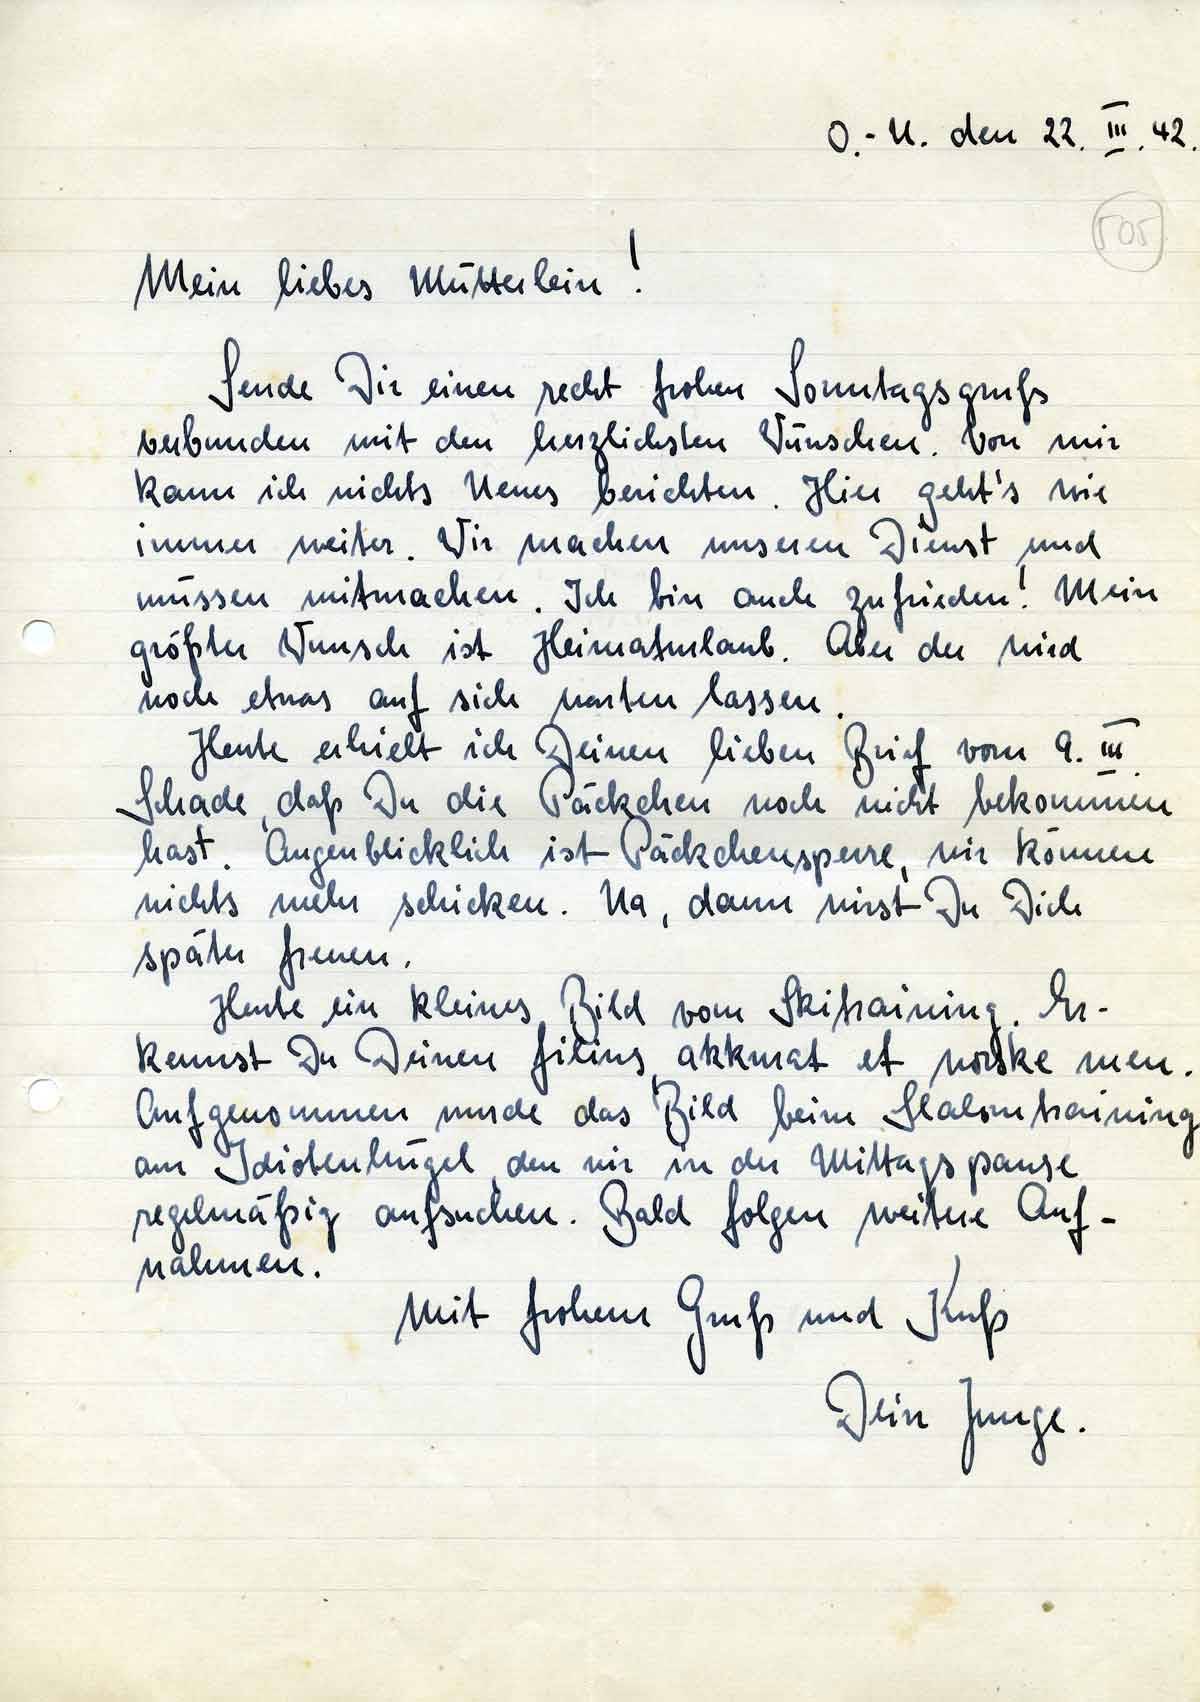 O.-U. den 22. III. 42.
505
Mein liebes Mütterlein!
Sende Dir einen recht frohen Sonntagsgruß
verbunden mit den herzlichsten Wünschen. Von mir
kann ich nichts Neues berichten. Hier geht's wie
immer weiter. Wir machen unseren Dienst und
müssen mitmachen. Ich bin auch zufrieden! Mein
größter Wunsch ist Heimaturlaub. Aber der wird
noch etwas auf sich warten lassen.
Heute erhielt ich Deinen lieben Brief vom 9. III.
Schade, daß Du die Päckchen noch nicht bekommen
hast. Augenblicklich ist Päckchensperre, wir können
nichts mehr schicken. Na, dann wirst Du Dich
später freuen.
Heute ein kleines Bild vom Skitraining. Er-
kennst Du Deinen filius, akkurat et norske men.
Aufgenommen wurde das Bild beim Slalomtraining
am Idiotenhügel, den wir in der Mittagspause
regelmäßig aufsuchen. Bald folgen weitere Auf-
nahmen.
Mit frohem Gruß und Kuß
Dein Junge.